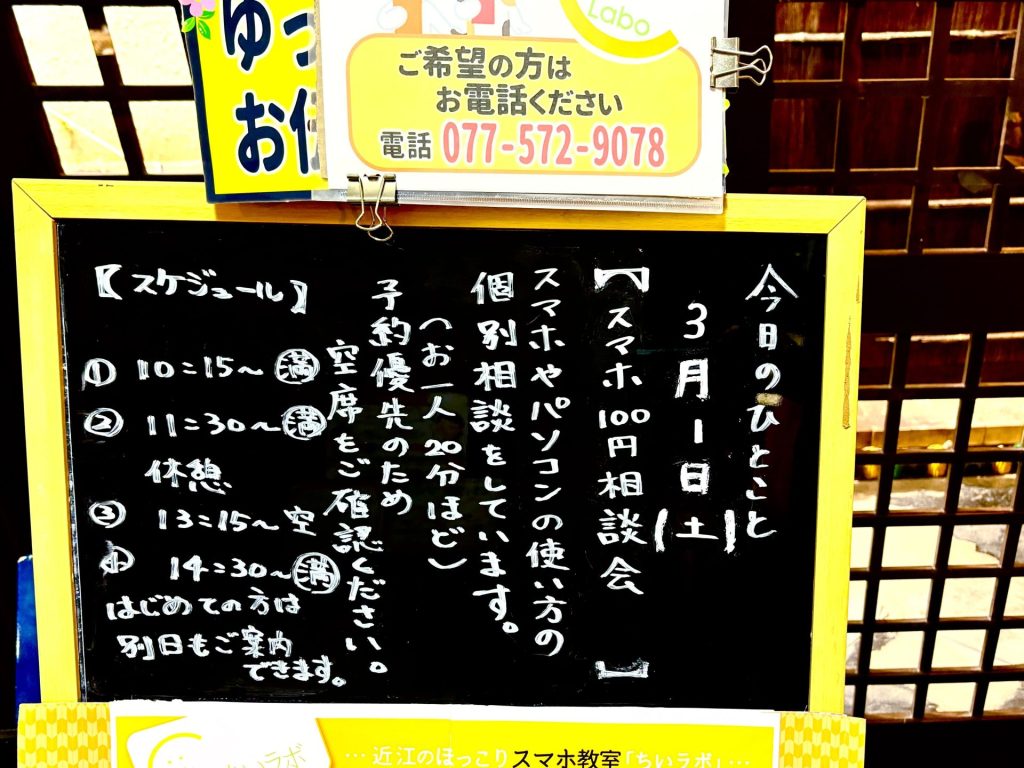 ゆっ
お
Labo
ご希望の方は
お電話ください
電話 077-572-9078
今日のひとこと
3月1日(土)
【スマホ100円相談会】
スマホやパソコンの使い方の
個別相談をしています。
(お一人20分ほど)
予約優先のため
空席をご確認ください。
【スケジュール】
① 10:15~ 満
② 11:30~ 満
休憩
③ 13:15~ 空
④ 14:30~ 満
はじめての方は
別日もご案内
できます。
ちいラボ
…近江のほっこりスマホ教室「ちいラボ」…